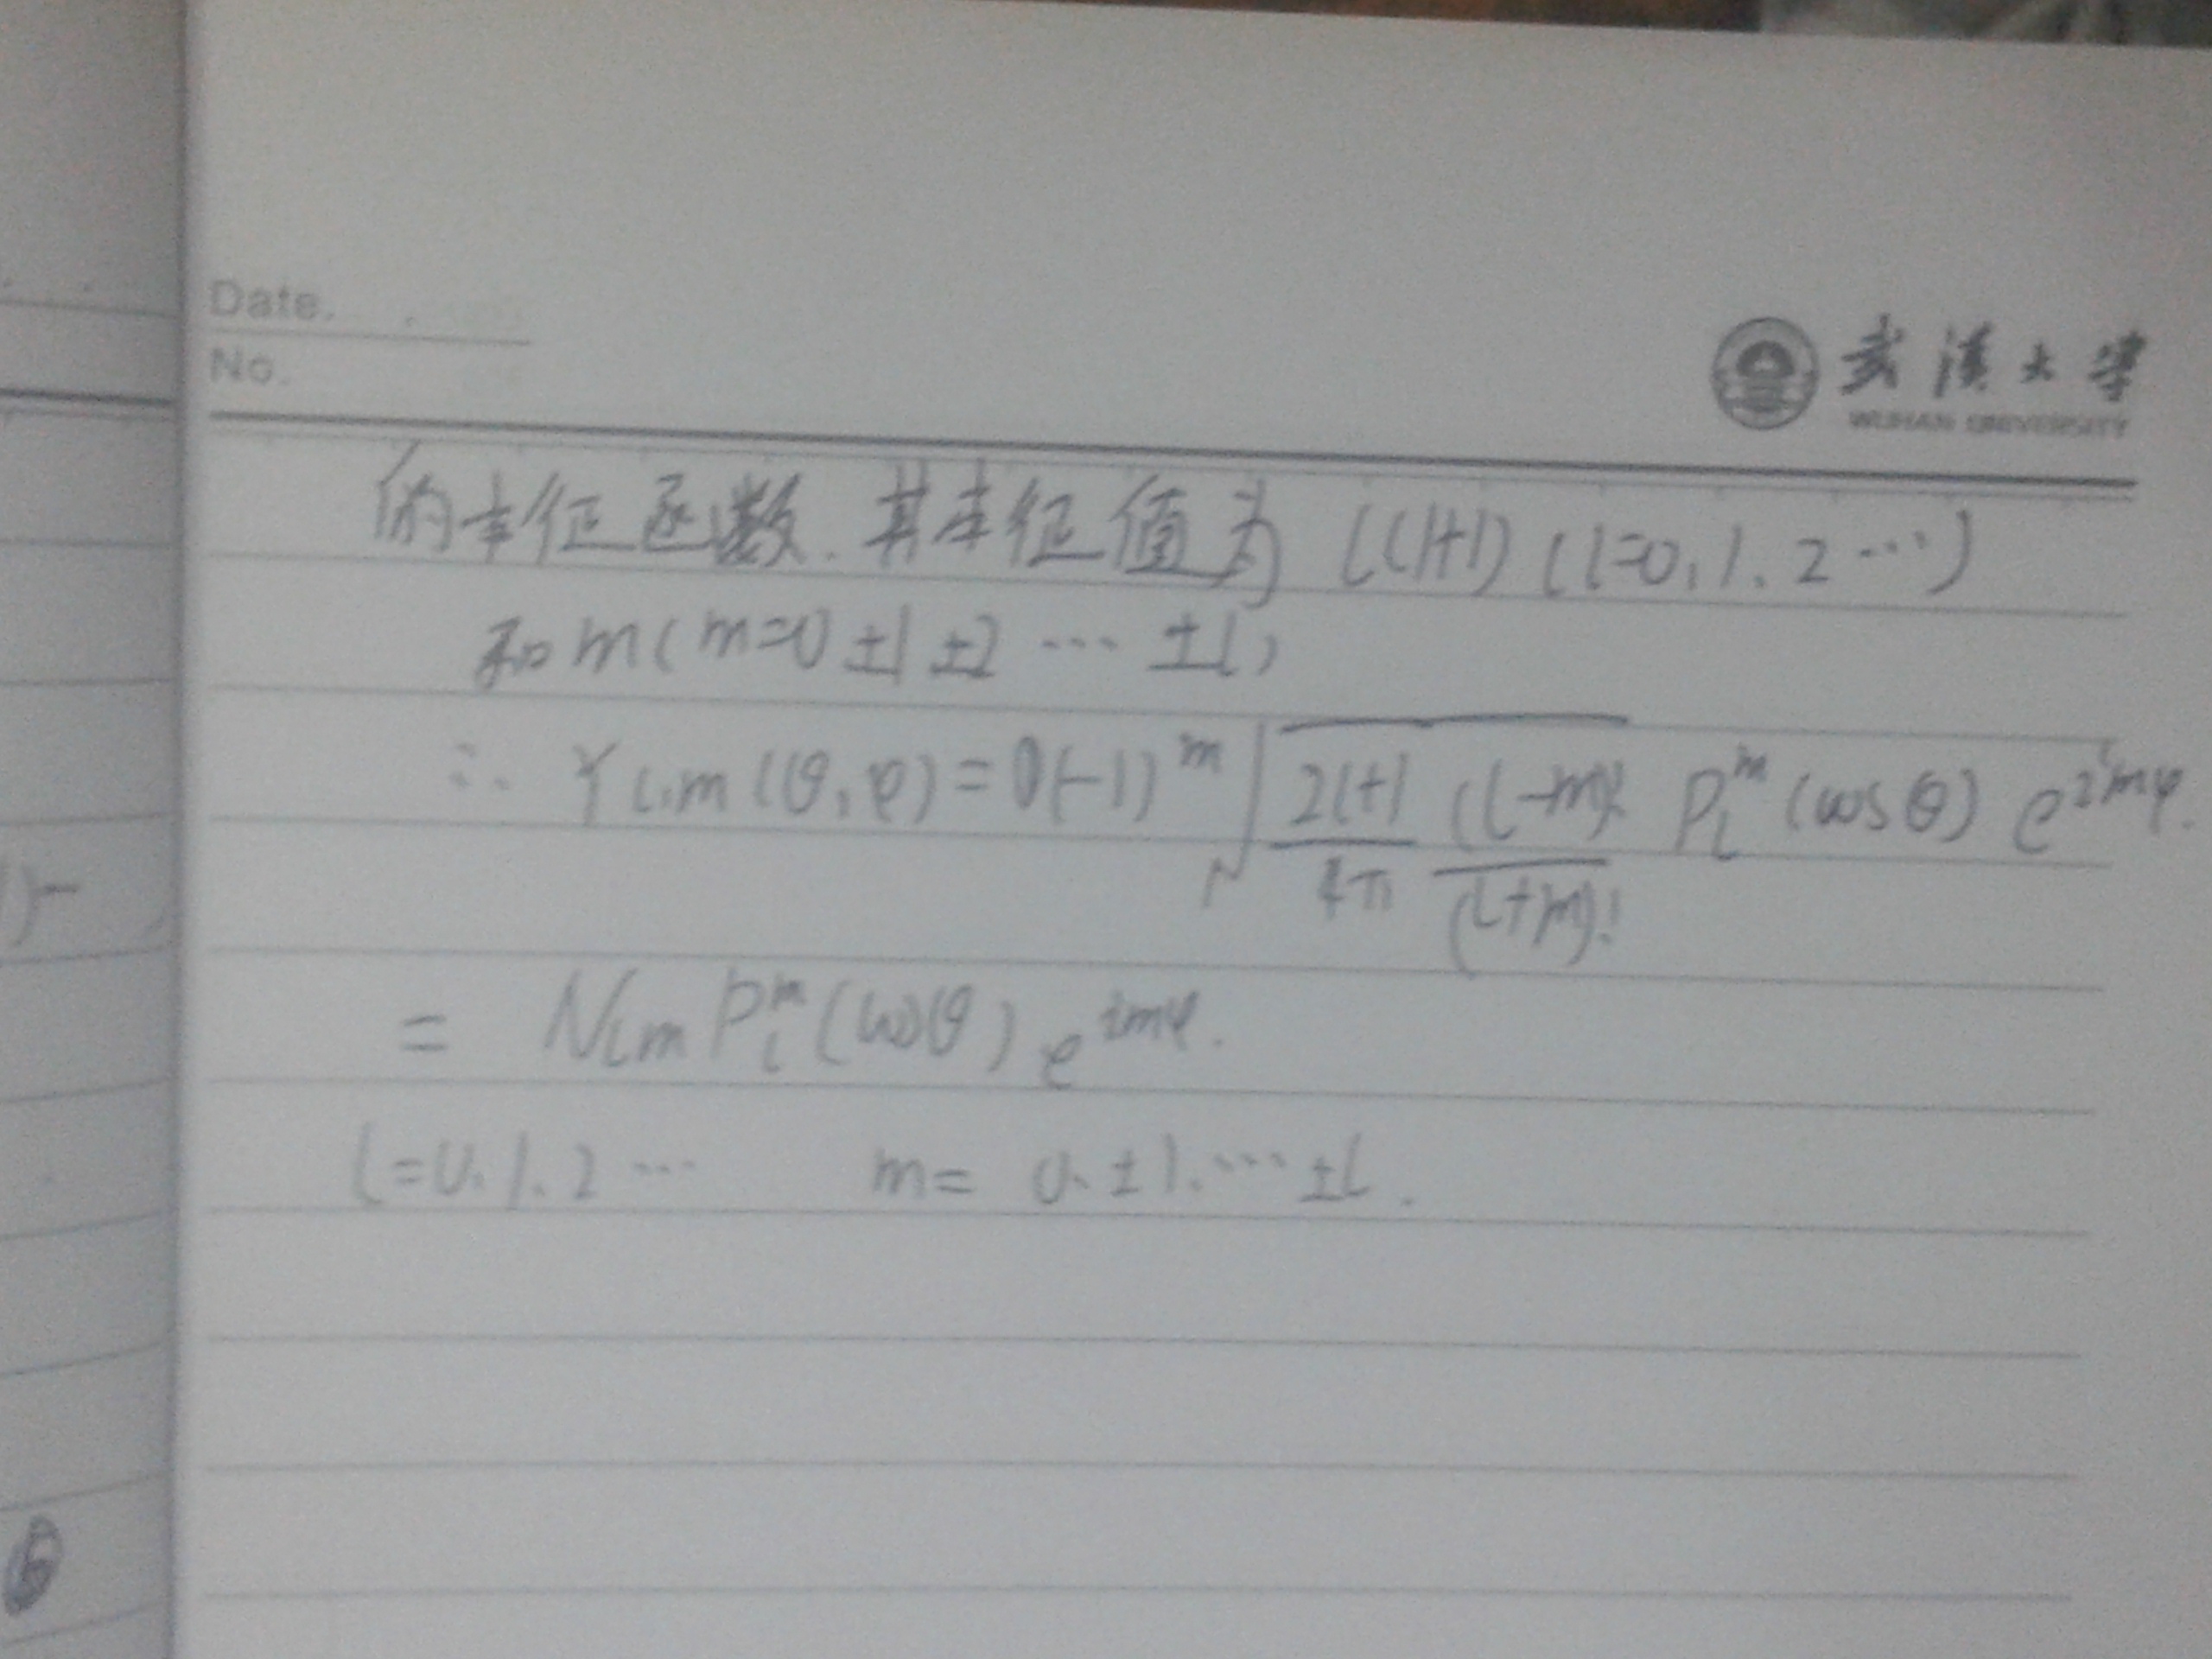 Date.
No.
武漢大學
WUHAN UNIVERSITY
的本征函数.其本征值为 l(l+1) (l=0,1,2…)
和 m(m=0 ±1 ±2 … ±l)
∴ Yl,m(θ,φ)=0(-1)^m √((2l+1)/(4π) (l-m)!/(l+m)!) P_l^m (cosθ) e^{imφ}.
= Nlm P_l^m (cosθ) e^{imφ}.
l=0.1.2… m= 0.±1.…±l.